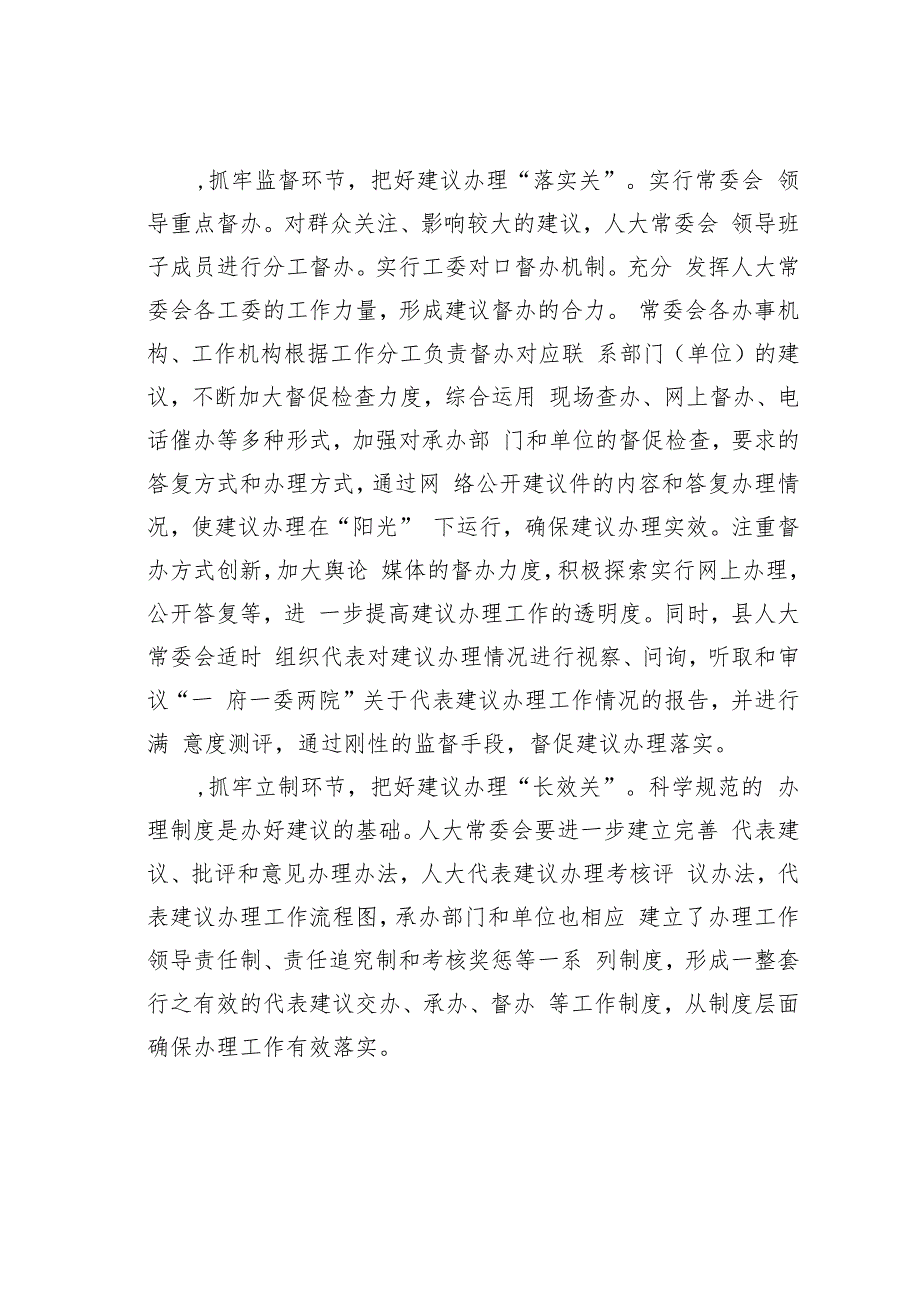 ,抓牢监督环节，把好建议办理“落实关”。实行常委会 领
导重点督办。对群众关注、影响较大的建议，人大常委会 领导班
子成员进行分工督办。实行工委对口督办机制。充分 发挥人大常
委会各工委的工作力量，形成建议督办的合力。 常委会各办事机
构、工作机构根据工作分工负责督办对应联 系部门（单位）的建
议，不断加大督促检查力度，综合运用 现场查办、网上督办、电
话催办等多种形式，加强对承办部 门和单位的督促检查，要求的
答复方式和办理方式，通过网 络公开建议件的内容和答复办理情
况，使建议办理在“阳光” 下运行，确保建议办理实效。注重督
办方式创新，加大舆论 媒体的督办力度，积极探索实行网上办理，
公开答复等，进 一步提高建议办理工作的透明度。同时，县人大
常委会适时 组织代表对建议办理情况进行视察、问询，听取和审
议“一 府一委两院”关于代表建议办理工作情况的报告，并进行
满 意度测评，通过刚性的监督手段，督促建议办理落实。
,抓牢立制环节，把好建议办理“长效关”。科学规范的 办
理制度是办好建议的基础。人大常委会要进一步建立完善 代表建
议、批评和意见办理办法，人大代表建议办理考核评 议办法，代
表建议办理工作流程图，承办部门和单位也相应 建立了办理工作
领导责任制、责任追究制和考核奖惩等一系 列制度，形成一整套
行之有效的代表建议交办、承办、督办 等工作制度，从制度层面
确保办理工作有效落实。